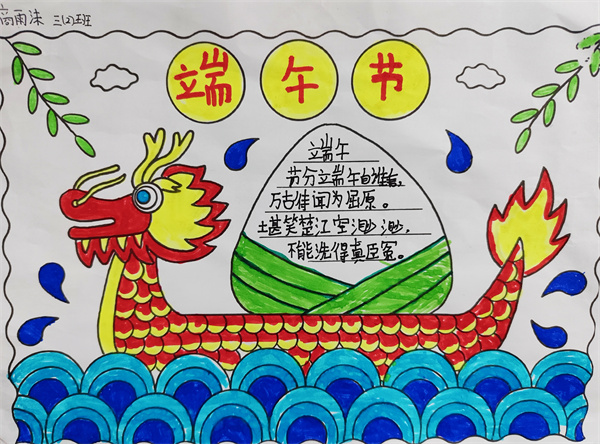 高雨沫
端午节
端午
节分端午自谁言,
万古传闻为屈原。
堪笑楚江空渺渺,
不能洗得真臣冤。